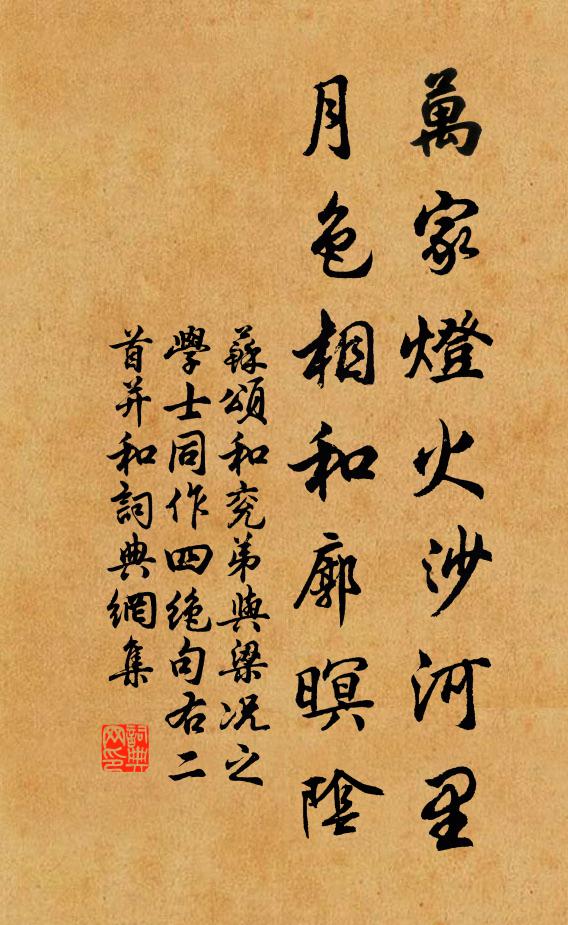 萬家燈火沙河里
月色相和廓暝陰
蘇頌和兖弟與梁况之
學士同作四絶句右二
首并和詞典網集
詞典网印